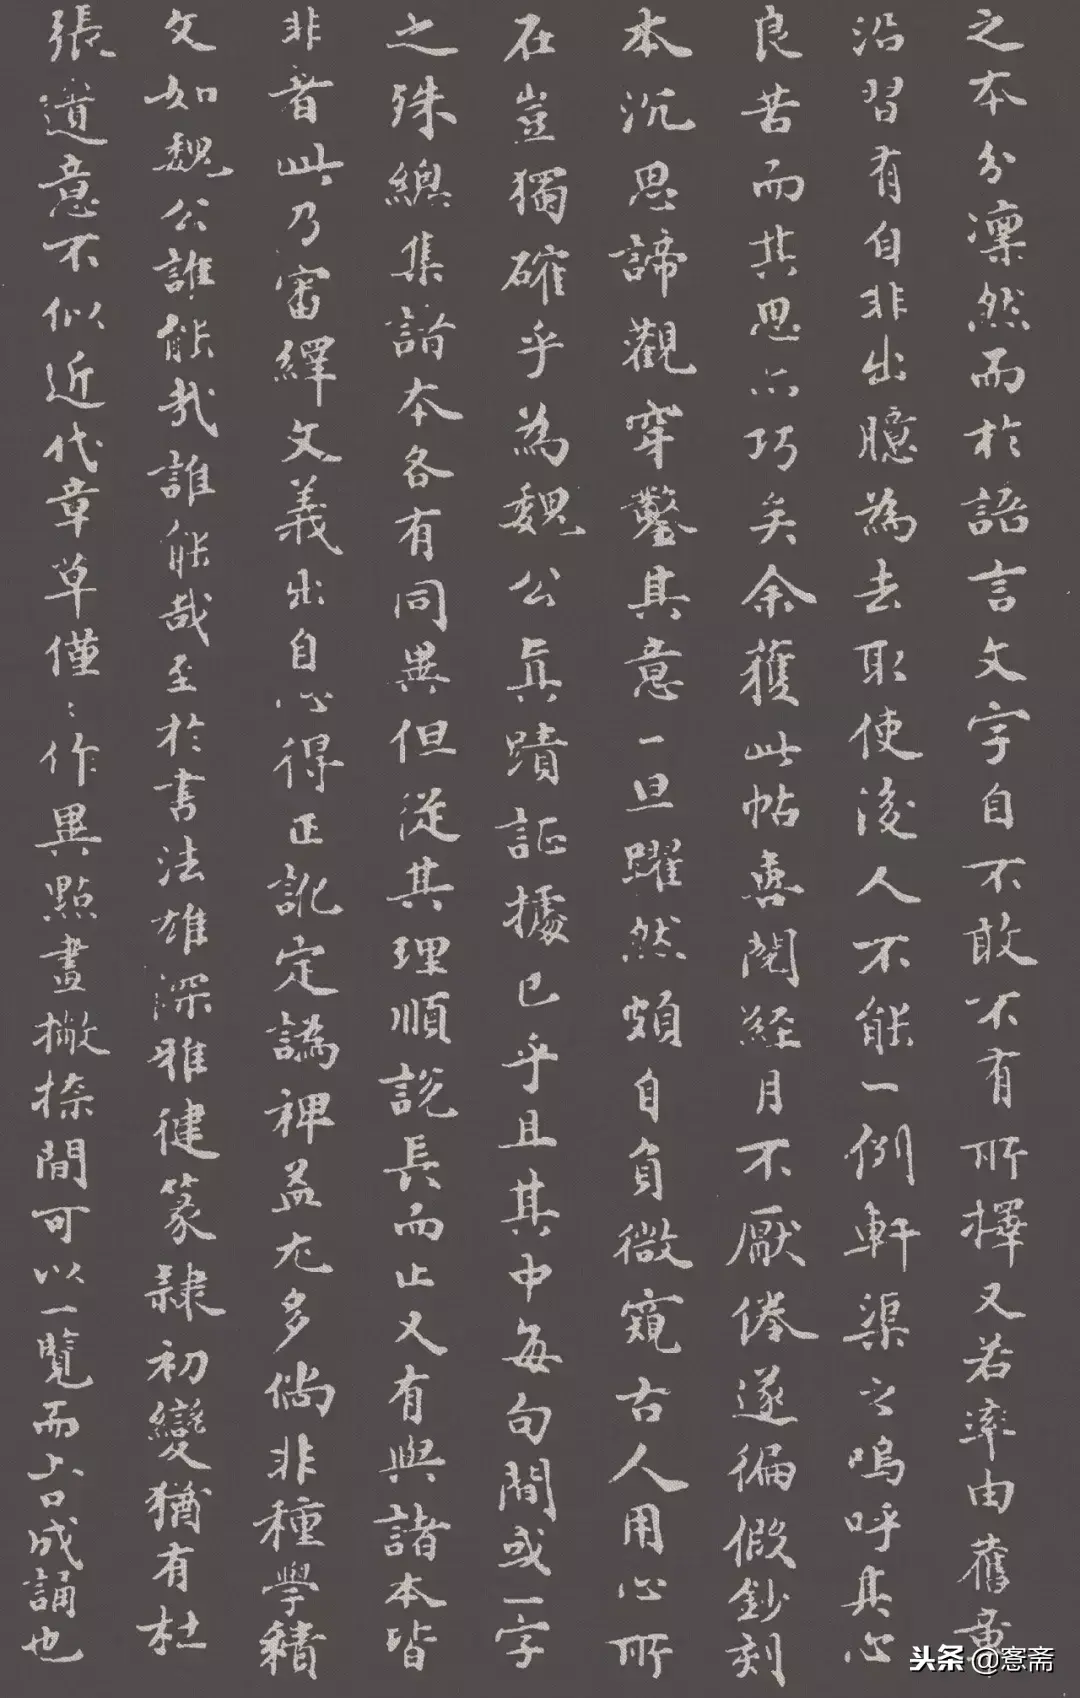 之本分凜然而於語言文字自不敢不有所擇又若率由舊章
沿習有自非出臆為去取使後人不能一例軒渠之嗚呼其心
良苦而其思亦巧矣余獲此帖耑閱經月不厭倦遂徧假鈔刻
本沉思諦觀穿鑿其意一旦躍然頗自負微窺古人用心所
在豈獨確乎為魏公真蹟証據已乎且其中每句間或一字
之殊總集諸本各有同異但從其理順說長而止又有與諸本皆
非者此乃審繹文義出自心得正訛定譌裨益尤多倘非種學積
文如魏公誰能哉誰能哉至於書法雄深雅健篆隸初變猶有杜
張遺意不似近代章草僅〻作異點畫撇捺間可以一覽而上口成誦也
头条 @窓斋